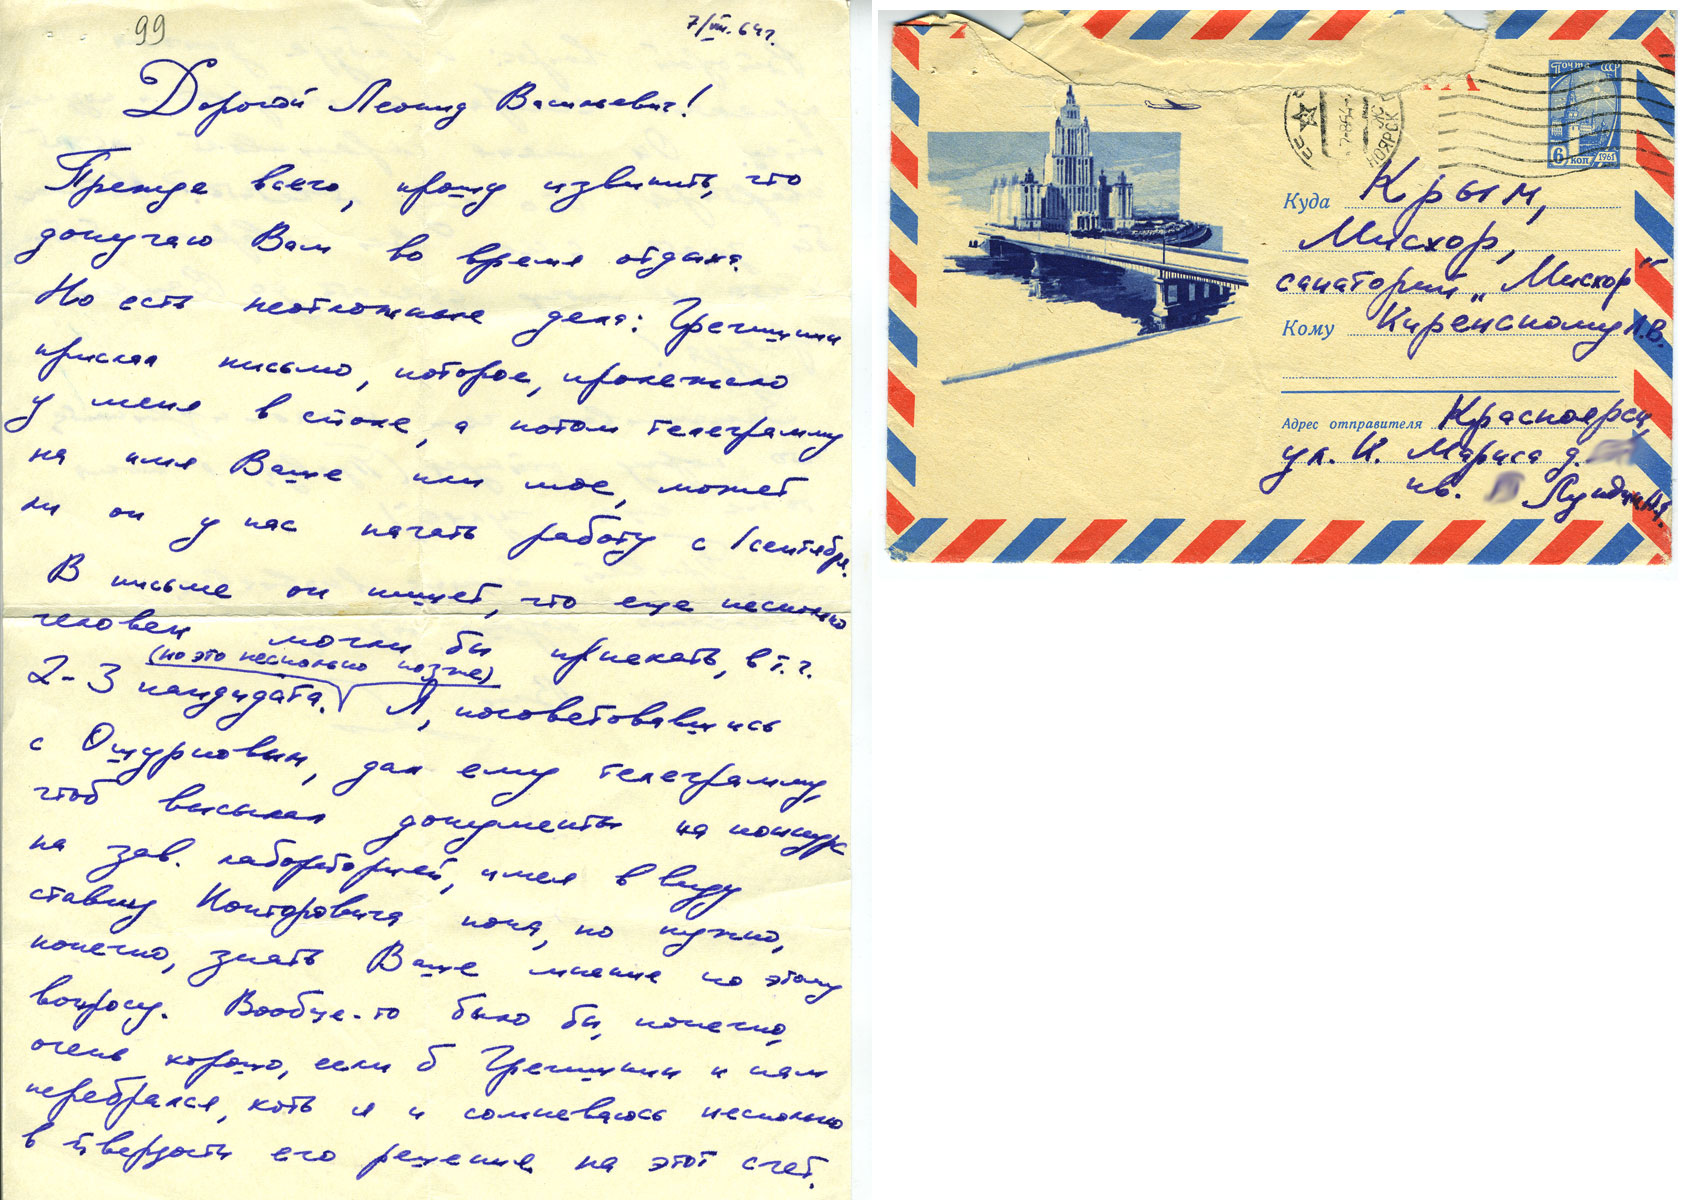 99
7/VIII.64г.
Дорогой Леонид Васильевич!
Прежде всего, прошу извинить, что
докучаю Вам во время отдыха.
Но есть неотложные дела: Гречишкин
прислал письмо, которое, пролежало
у меня в столе, а потом телеграмму
на имя Ваше или мое, может
ли он у нас начать работу с 1 сентября.
В письме он пишет, что еще несколько
человек могли бы приехать, в т.ч.
(но это несколько позже)
2-3 кандидата. Я, посоветовавшись
с Ошурковым, дал ему телеграмму,
чтоб высылал документы на конкурс
на зав. лабораторией, имея в виду
ставку Конторовича пока, но нужно,
конечно, знать Ваше мнение по этому
вопросу. Вообще-то было бы, конечно,
очень хорошо, если б Гречишкин к нам
перебрался, хоть я и сомневаюсь несколько
в твердости его решения на этот счет.
Почта СССР
6 коп 1961
НОЯРСК
Куда Крым,
Мисхор,
санаторий „Мисхор"
Кому Киренскому Л.В.
Адрес отправителя Красноярск,
ул. К. Маркса д.
кв.